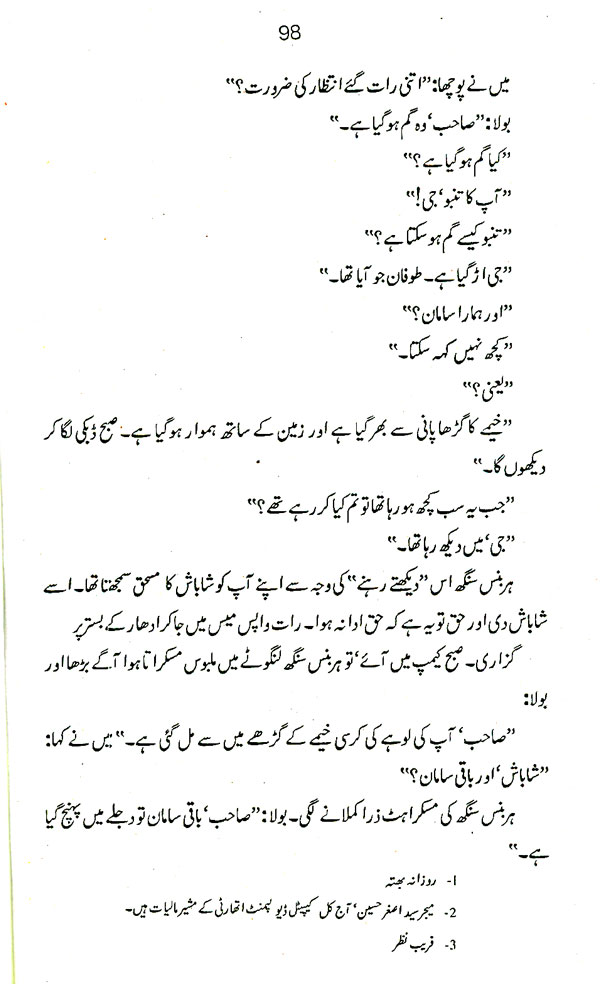 98
میں نے پوچھا: ”اتنی رات گئے انتظار کی ضرورت؟“
بولا: ”صاحب‘ وہ گم ہو گیا ہے۔“
”کیا گم ہو گیا ہے؟“
”آپ کا تنبو‘ جی!“
”تنبو کیسے گم ہو سکتا ہے؟“
”جی اڑ گیا ہے۔ طوفان جو آیا تھا۔“
”اور ہمارا سامان؟“
”کچھ نہیں کہہ سکتا۔“
”یعنی؟“
”خیمے کا گڑھا پانی سے بھر گیا ہے اور زمین کے ساتھ ہموار ہو گیا ہے۔ صبح ڈبکی لگا کر
دیکھوں گا۔“
”جب یہ سب کچھ ہو رہا تھا تو تم کیا کر رہے تھے؟“
”جی‘ میں دیکھ رہا تھا۔“
ہربنس سنگھ اس ”دیکھتے رہنے“ کی وجہ سے اپنے آپ کو شاباش کا مستحق سمجھتا تھا۔ اسے
شاباش دی اور حق تو یہ ہے کہ حق ادا نہ ہوا۔ رات واپس میس میں جا کر ادھار کے بستر پر
گزاری۔ صبح کیمپ میں آئے‘ تو ہربنس سنگھ لنگوٹے میں ملبوس مسکراتا ہوا آگے بڑھا اور
بولا:
”صاحب‘ آپ کی لوہے کی کرسی خیمے کے گڑھے میں سے مل گئی ہے۔“ میں نے کہا:
”شاباش‘ اور باقی سامان؟“
ہربنس سنگھ کی مسکراہٹ ذرا کملانے لگی۔ بولا: ”صاحب‘ باقی سامان تو دجلے میں پہنچ گیا
ہے۔“
1- روزانہ بھتہ
2- میجر سید اصغر حسین‘ آج کل کیپٹل ڈیویلپمنٹ اتھارٹی کے مشیر مالیات ہیں۔
3- فریب نظر